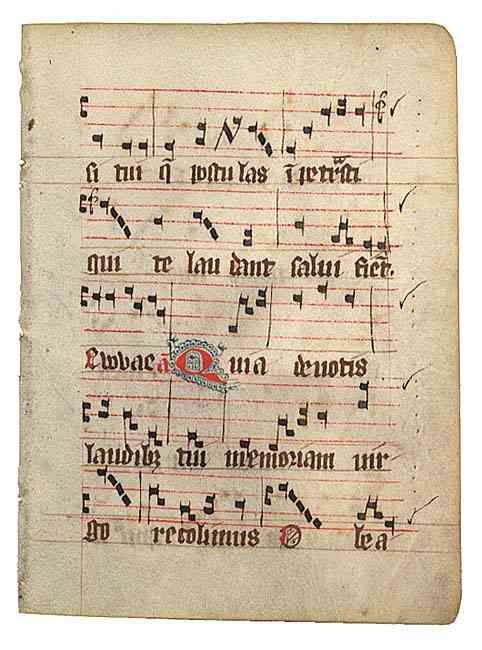 si tui q̄ postulas īpetrasti
qui te lau dant salui fiēt.
Ewovae a Quia deuotis
laudibꝫ tui memoriam uir
go recolimus O lea